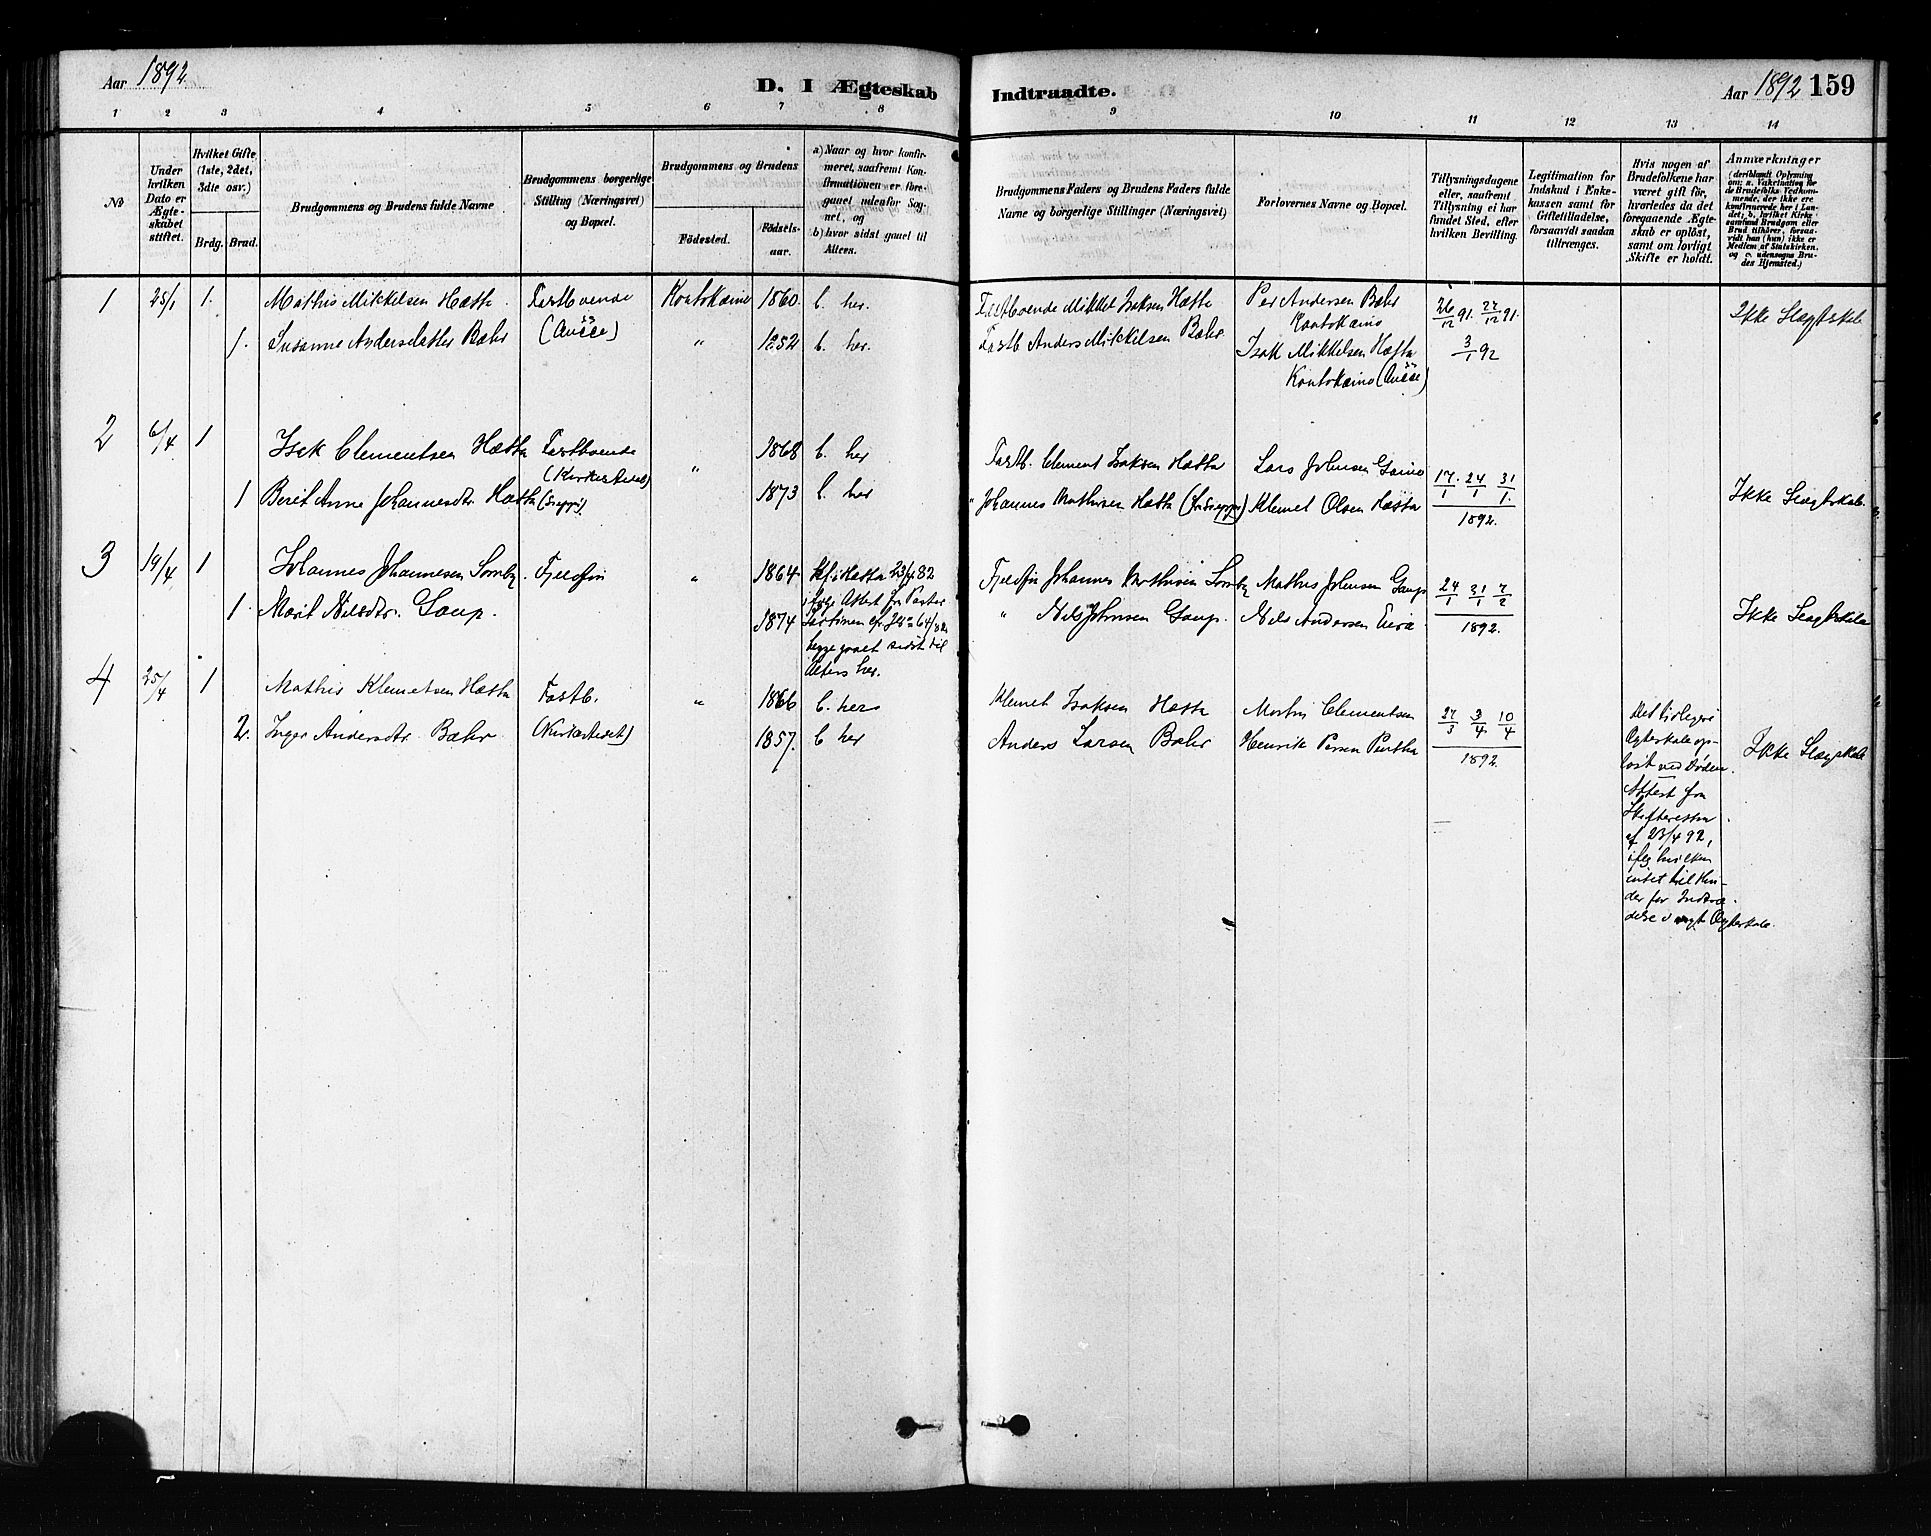 Aar 1892
D. I Ægteskab Indtraadte.
Aar 1892 159
1 2 3 4 5 6 7 8 9 10 11 12 13 14
No
Under hvilken Dato er Ægteskabet stiftet.
Hvilket Gifte, (1ste, 2det, 3die osv.)
Brdg. Brud.
Brudgommens og Brudens fulde Navne
Brudgommens borgerlige Stilling (Næringsvei) og Bopæl.
Brudgommens og Brudens
Födested.
Födselsaar.
a) Naar og hvor konfirmeret, saafremt Konfirmationen er foregaaet udenfor Sognet, og
b) hvor sidst gaaet til Alters.
Brudgommens Faders og Brudens Faders fulde Navne og borgerlige Stillinger (Næringsvei)
Forlovernes Navne og Bopæl.
Tillysningsdagene eller, saafremt Tillysning ei har fundet Sted, efter hvilken Bevilling.
Legitimation for Indskud i Enkekassen samt for Giftetilladelse, forsaavidt saadan tiltrænges.
Hvis nogen af Brudefolkene har været gift før, hvorledes da det foregaaende Ægteskab er opløst, samt om lovligt Skifte er holdt.
Anmærkninger (deriblandt Oplysning om: a. Vakcination for de Brudefolks Vedkommende, der ikke ere konfirmerede her i Landet; b. hvilket Kirkesamfund Brudgom eller Brud tilhører, forsaavidt han (hun) ikke er Medlem af Statskirken, og c. udensogns Brudes Hjemsted.)
1 25/1 1. Mathis Mikkelsen Hætta. Fastboende Koutokæino 1860. b. her. Fastboende Mikkel Isaksen Hætta Per Andersen Bæhr 26/12 91. 27/12 91. Ikke Slægtskab
(Ausse) Koutokæino
1. Susanne Andersdatter Bæhr " 1852 b. her. Fastb Anders Mikkelsen Bæhr Isak Mikkelsen Hætta 3/1 92
Koutokæino (Ausse)
2 6/4 1 Isak Clementsen Hætta Fastboende " 1868 b. her Fastb. Clement Isaksen Hætta Lars Johnsen Gaino 17/1. 24/1 31/1.
(Kirkestedet)
1 Berit Anne Johannesdtr Hætta 1873 b. her " Johannes Mathisen Hætta Klemet Olsen Hætta 1892. Ikke Slægtskab.
3 19/4 1 Johannes Johannesen Somby. Fjeldfin " 1864. Kf. i 23/4 82 Fjeldfin Johannes Mathisen Somby Mathis Johnsen Gaup 24/1 31/1 7/2
ifølge Attest fra Pastor
1. Marit Nilsdtr. Gaup. 1874 " Nils Johnsen Gaup. Nils Andersen Eira 1892. Ikke Slægtskab
Begge gaaet sidst til
Alters her.
4 25/4 1 Mathis Klemetsen Hætta Fastb. " 1866 b. her Klemet Isaksen Hætta Martin Clementsen 27/3 3/4 10/4 Det tidligere
2. Inger Andersdtr. Bæhr (Kirkestedet) 1857. b her Anders Larsen Bæhr Henrik Persen Pentha 1892. Ægteskab op-
løst ved Døden. Ikke Slægtskab
Attest fra
Skifteretten
af 23/4 92,
ifølg. hvilken
intet til Hin-
der for Indtræ-
delse i nyt Ægteskab.